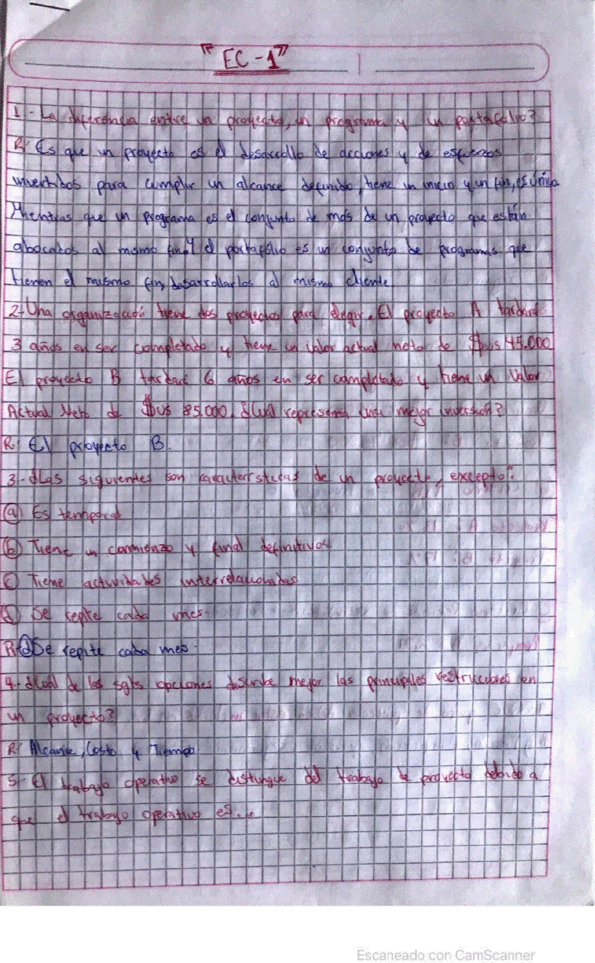 "EC-1"
1- La diferencia entre un proyecto, un programa y un portafolio?
R/ Es que un proyecto es el desarrollo de acciones y de esfuerzos
invertidos para cumplir un alcance definido, tiene un inicio y un fin, es único
Mientras que un programa es el conjunto de mas de un proyecto que están
abocados al mismo fin y el portafolio es un conjunto de programas que
tienen el mismo fin, desarrollarlos al mismo cliente
2- Una organización tiene dos proyectos para elegir. El proyecto A tardará
3 años en ser completado y tiene un valor actual neto de $us 45.000
El proyecto B tardará 6 años en ser completado y tiene un Valor
Actual Neto de $us 85.000. ¿Cuál representa una mejor inversión?
R: El proyecto B.
3- ¿Las siguientes son características de un proyecto, excepto?
a) Es temporal
b) Tiene un comienzo y final definitivos
c) Tiene actividades interrelacionadas
d) Se repite cada mes.
R/ d) Se repite cada mes.
4- ¿Cuál de las sgts opciones describe mejor las principales restricciones en
un proyecto?
R/ Alcance, Costo y Tiempo
5- El trabajo operativo se distingue del trabajo de proyecto debido a
que el trabajo operativo es...
Escaneado con CamScanner